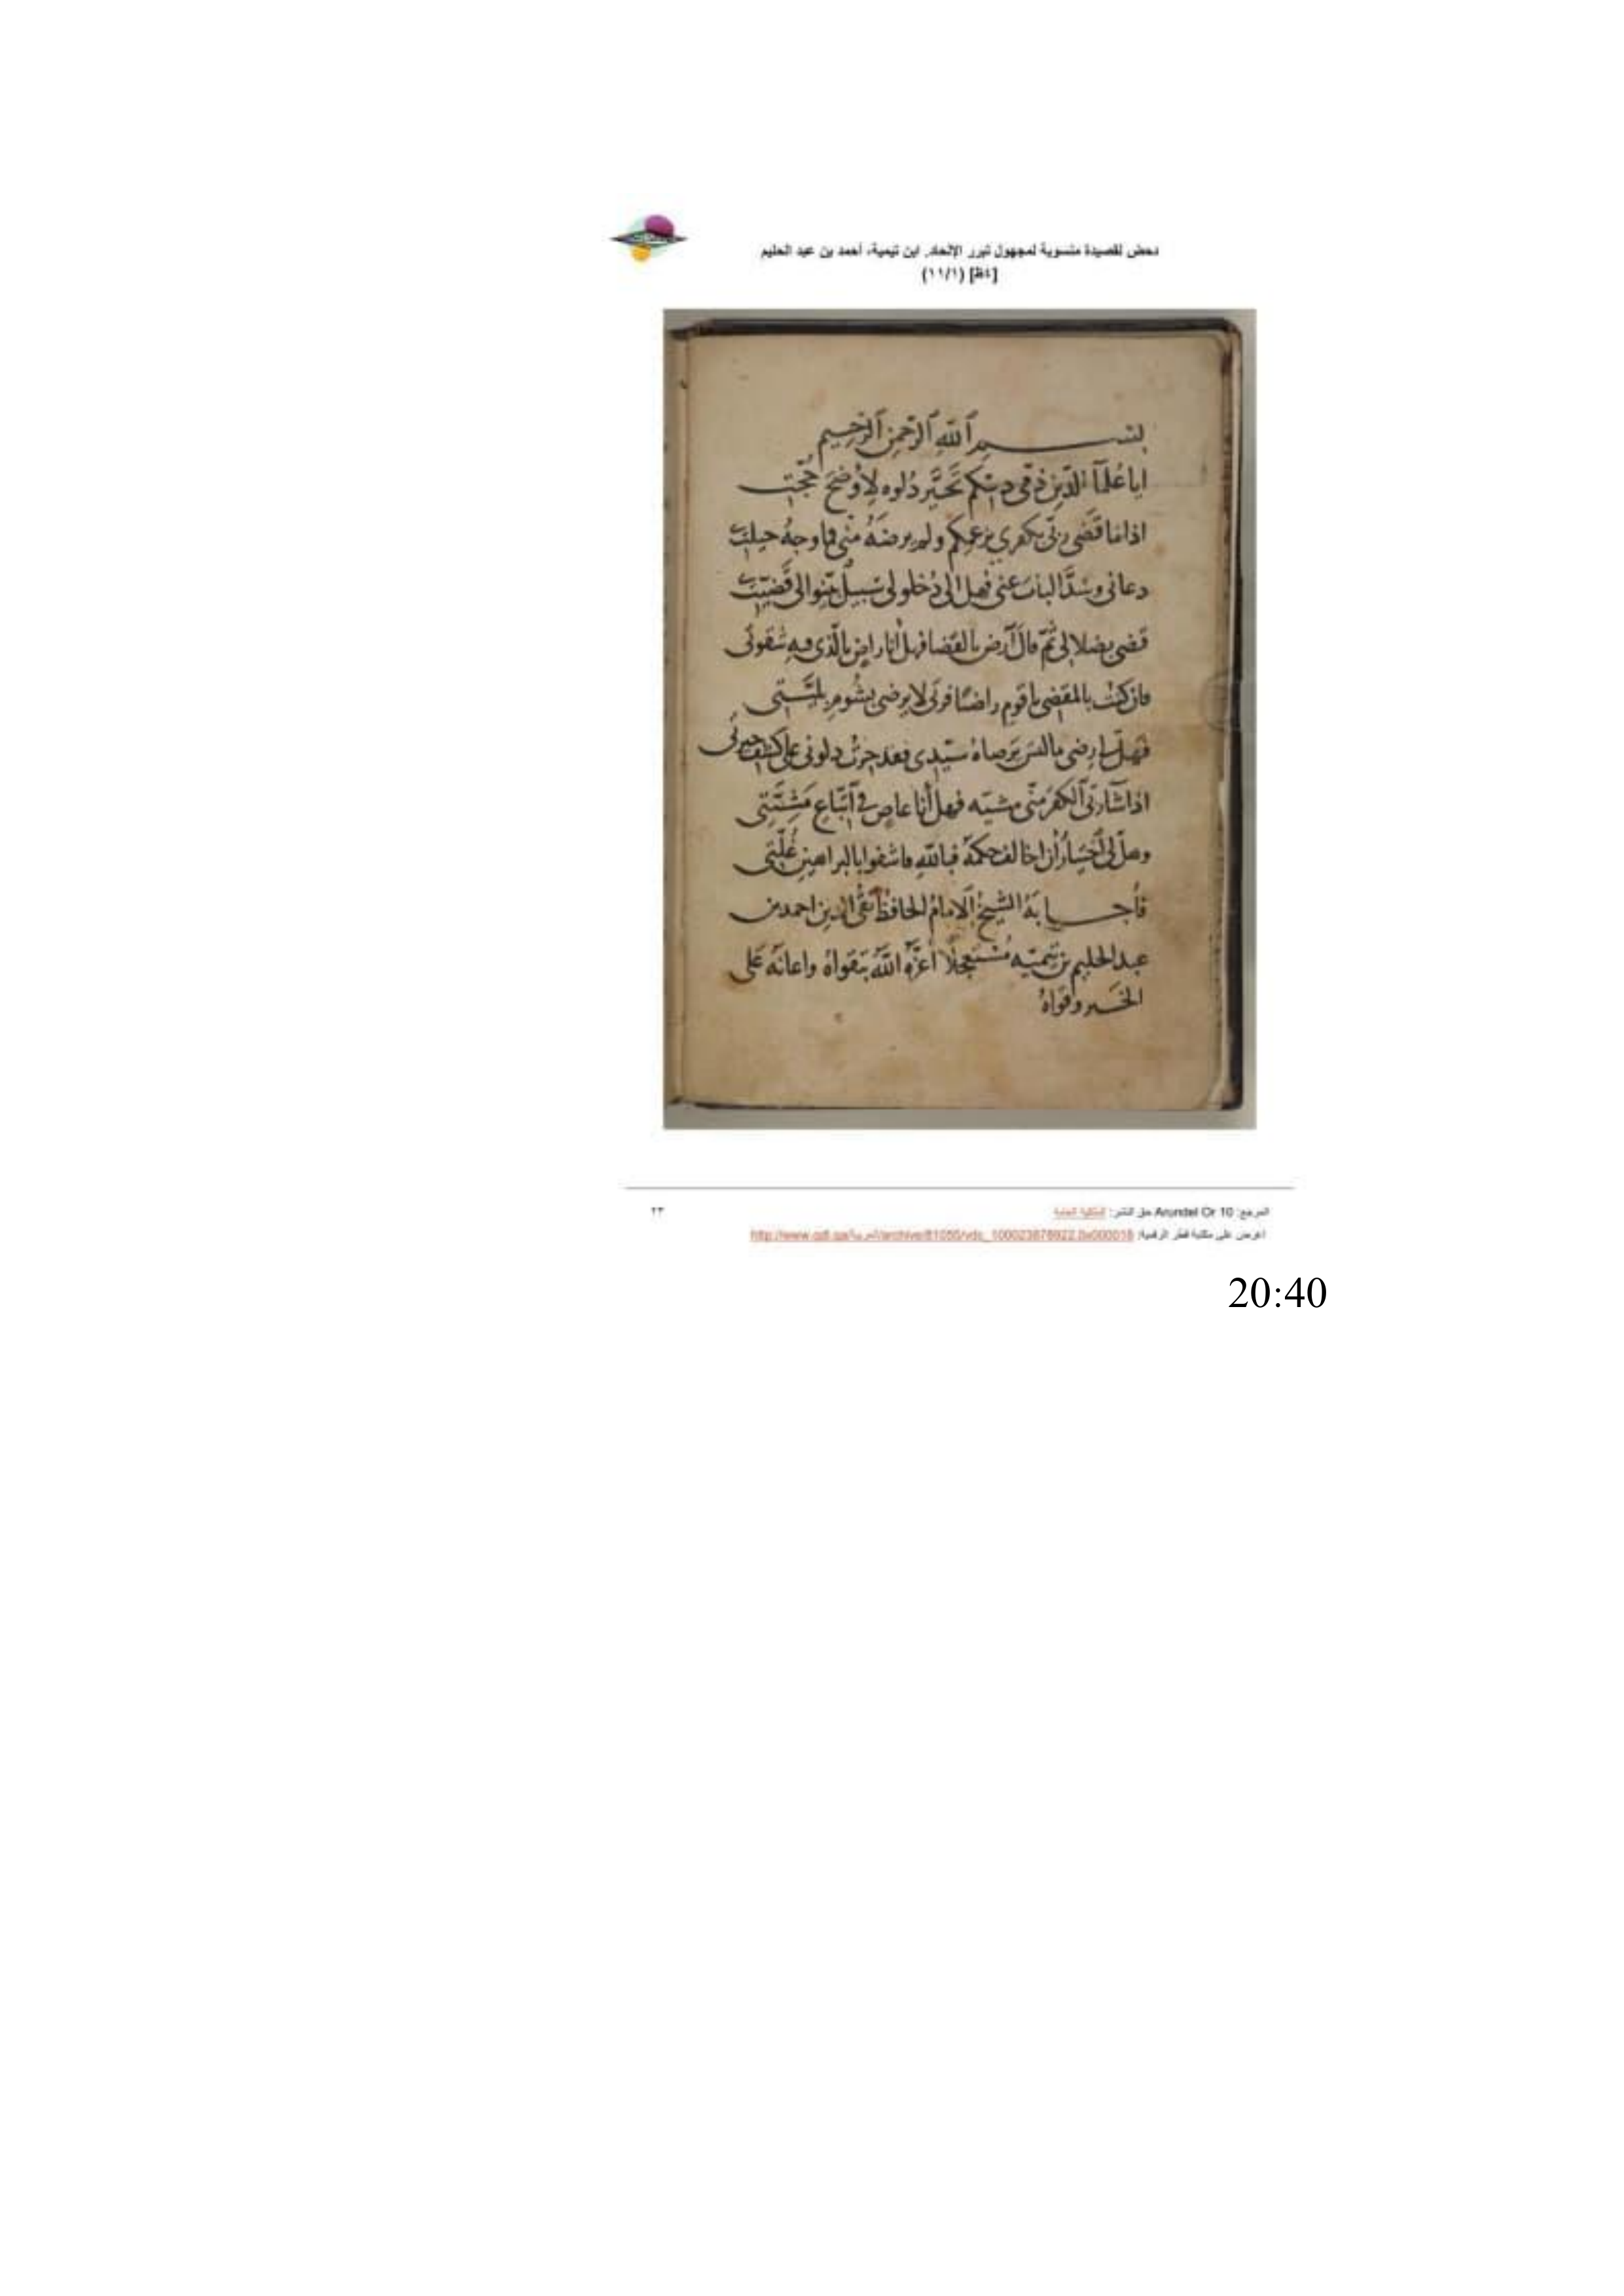 دحض لقصيدة منسوبة لمجهول تبرر الإلحاد. ابن تيمية، أحمد بن عبد الحليم
[٤ظ] (١١/١)
بسم ٱللّه ٱلرّحمن ٱلرّحيم
ايا عُلَمآ الدّين ذمّي دينكم تحَيَّر دُلوه لِاوُضَحَ حُجّتى
اذا ما قَضَى ربّي بكفري بزعمكم ولم يرضَهُ منّي فما وجهُ حيلتى
دعاني وسَدَّ الباب عني فهل الى دُخلولى سَبيلٌ بيّنوا الى قَضيّتى
قضى بضلالى ثمّ قالَ ٱرضَ بالقضا فهل أنا راضٍ بالّذى فيهِ شقوتى
فان كنتُ بالمقضى يا قوم راضيًا فربّى لا يرضى بشوم بليّتى
فهل لى رضى ما ليس يَرضاهُ سيّدى فقد حِرتُ دلونى على كشف حيرتى
اذا شا ربّى ٱلكفرَ منّى مشيّه فهل أنا عاصٍ في ٱتّباعِ مَشيّتى
وهل لى ٱختيارٌ أن اخالف حكمَهُ فباللّهِ فاشفوا بالبراهينِ غُلّتى
فأجابَهُ الشيخُ ٱلامامُ الحافظُ تقىُّ الدين احمد بن
عبد الحليم بن تيميّه مُستعجلًا أعزّهُ اللّهُ بتقواهُ واعانَهُ عَلى
الخير وقواهُ
المرجع: Arundel Or 10 حق النشر: الملكية العامة
٢٣
اعرض على مكتبة قطر الرقمية: http://www.qdl.qa/العربية/archive/81055/vdc_100023876922.0x000018
20:40